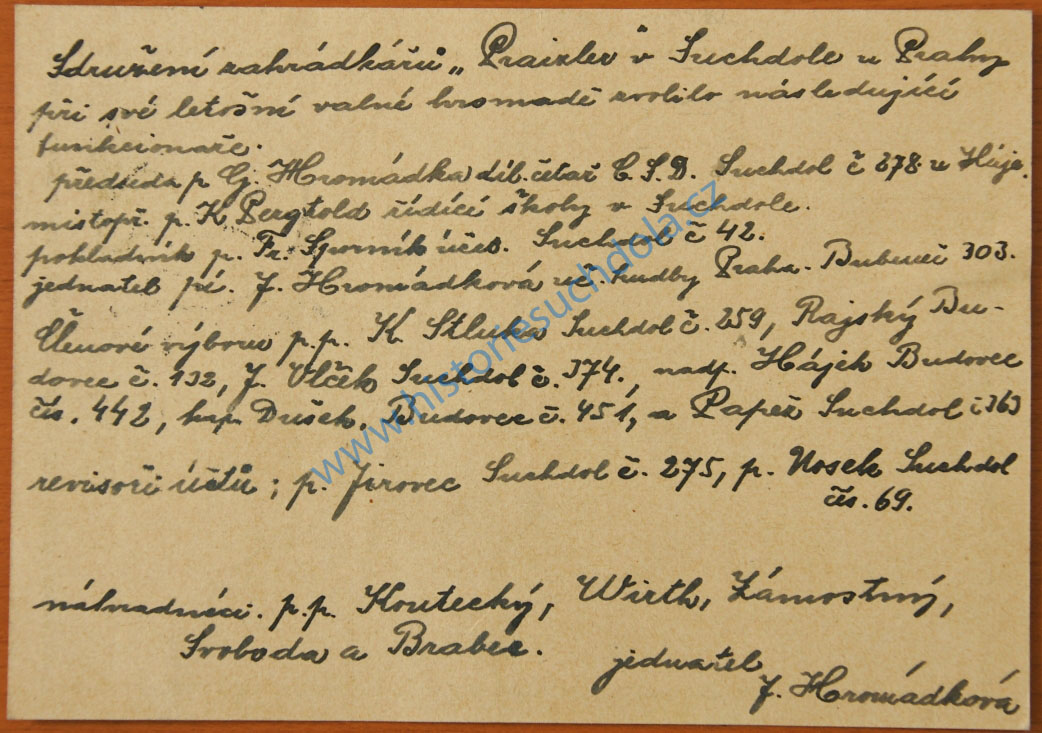 Sdružení zahrádkářů „Praizler" v Suchdole u Prahy
při své letošní valné hromadě zvolilo následující
funkcionaře.
předseda p G. Hromádka díl. četař Č.S.D. Suchdol č 278 u Háje.
mistopř. p. K Pergtold řídící školy v Suchdole.
pokladník p. Fr. Sporník účes. Suchdol č 42.
jednatel pí. J. Hromádková uč. hudby Praha - Bubeneč 303.
Členové výboru p.p. K. Stluka Suchdol č. 259, Rajský Bu-
dovec č. 132, J. Vlček Suchdol č. 374., nadp. Hájek Budovec
čís. 442, kap. Dušek, Budovec č. 451, a Papež Suchdol č 363
revisoři účtů; p. Jirovec Suchdol č. 275, p. Nosek Suchdol
čís. 69.
náhradníci. p.p. Koutecký, Wirth, Zámostný,
Svoboda a Brabec.
jednatel
J. Hromádková
www.historiesuchdola.cz